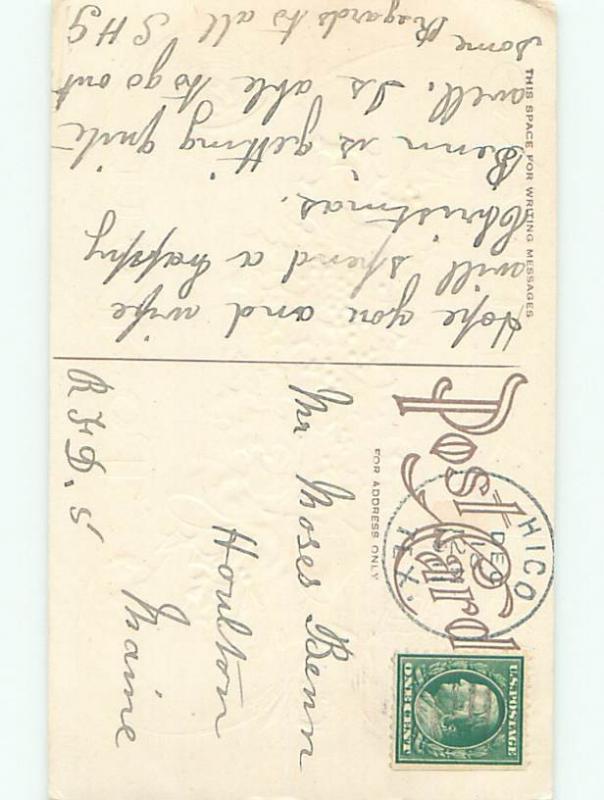 THIS SPACE FOR WRITING MESSAGES
Hope you and wife
will spend a happy
Christmas.
Benn is getting quite
well. Is able to go out
some Regards to all S H G
Post Card
FOR ADDRESS ONLY
HICO
DEC 9
TEX.
U.S. POSTAGE
ONE CENT
Mr Moses Benn
Houlton
Maine
R F D. 5